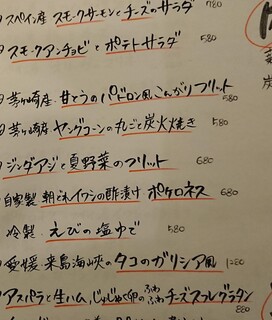 スペイン産 スモークサーモンとチーズのサラダ 780
スモークアンチョビとポテトサラダ 580
茅ヶ崎産 甘とうのパドロン風こんがりフリット 580
茅ヶ崎産 ヤングコーンの丸ごと炭火焼き 580
ジンダアジと夏野菜のフリット 680
自家製 朝どれイワシの酢漬け ボケロネス 680
冷製 えびの塩ゆで 580
愛媛 来島海峡のタコのガリシア風 1280
アスパラと生ハム、じゅじゅく卵のふわふわチーズスフレグラタン 880